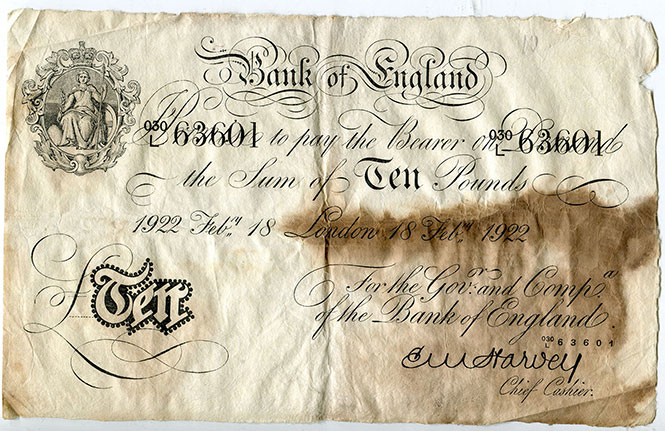 Bank of England
030 L 63601 030 L 63601
Promise to pay the Bearer on Demand
the Sum of Ten Pounds
1922 Feby. 18 London 18 Feby. 1922
For the Govr. and Compa.
£Ten
of the Bank of England.
030 L 63601
E M Harvey
Chief Cashier.